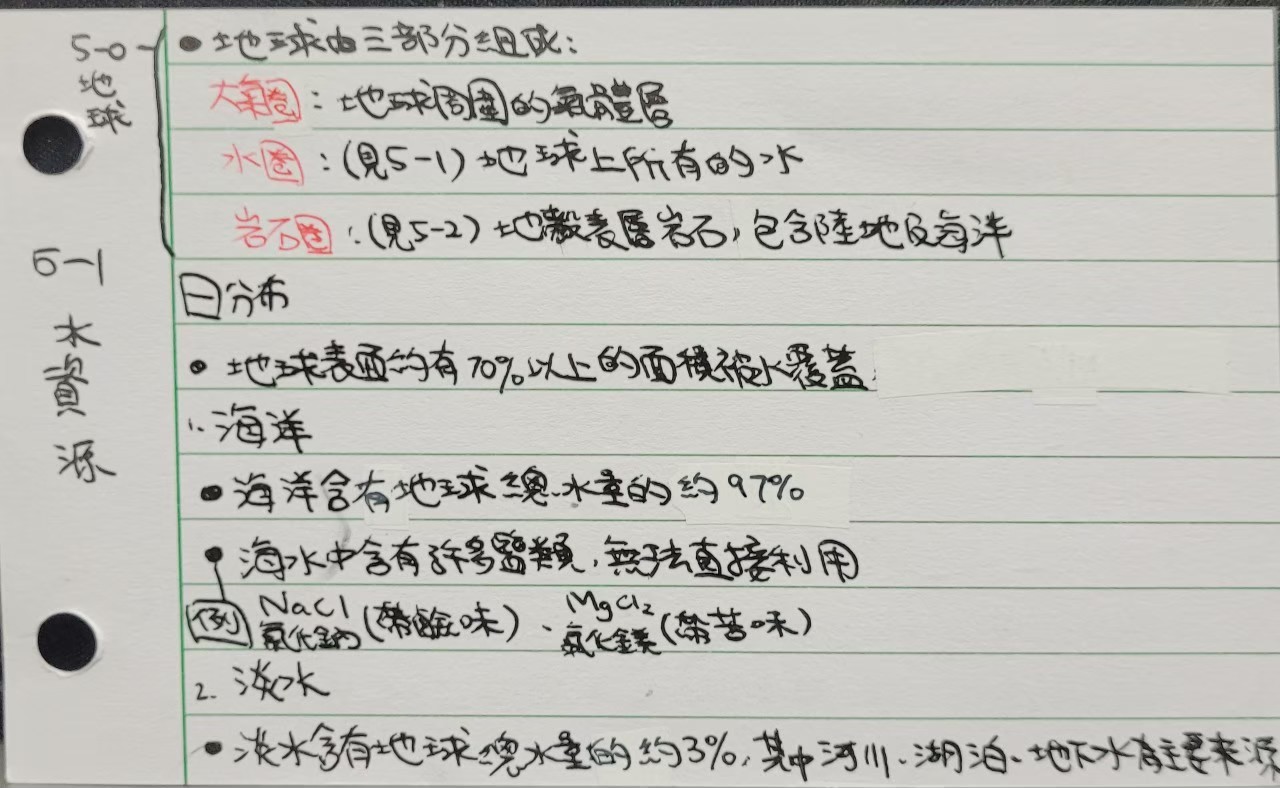 5-0 地球
● 地球由三部分組成：
大氣圈：地球周圍的氣體層
水圈：(見5-1) 地球上所有的水
岩石圈：(見5-2) 地殼表層岩石，包含陸地及海洋
5-1 水資源
一 分布
● 地球表面約有70%以上的面積被水覆蓋
1. 海洋
● 海洋含有地球總水量的約97%
● 海水中含有許多鹽類，無法直接利用
例 NaCl 氯化鈉 (帶鹹味)、MgCl₂ 氯化鎂 (帶苦味)
2. 淡水
● 淡水含有地球總水量的約3%，其中河川、湖泊、地下水為主要來源